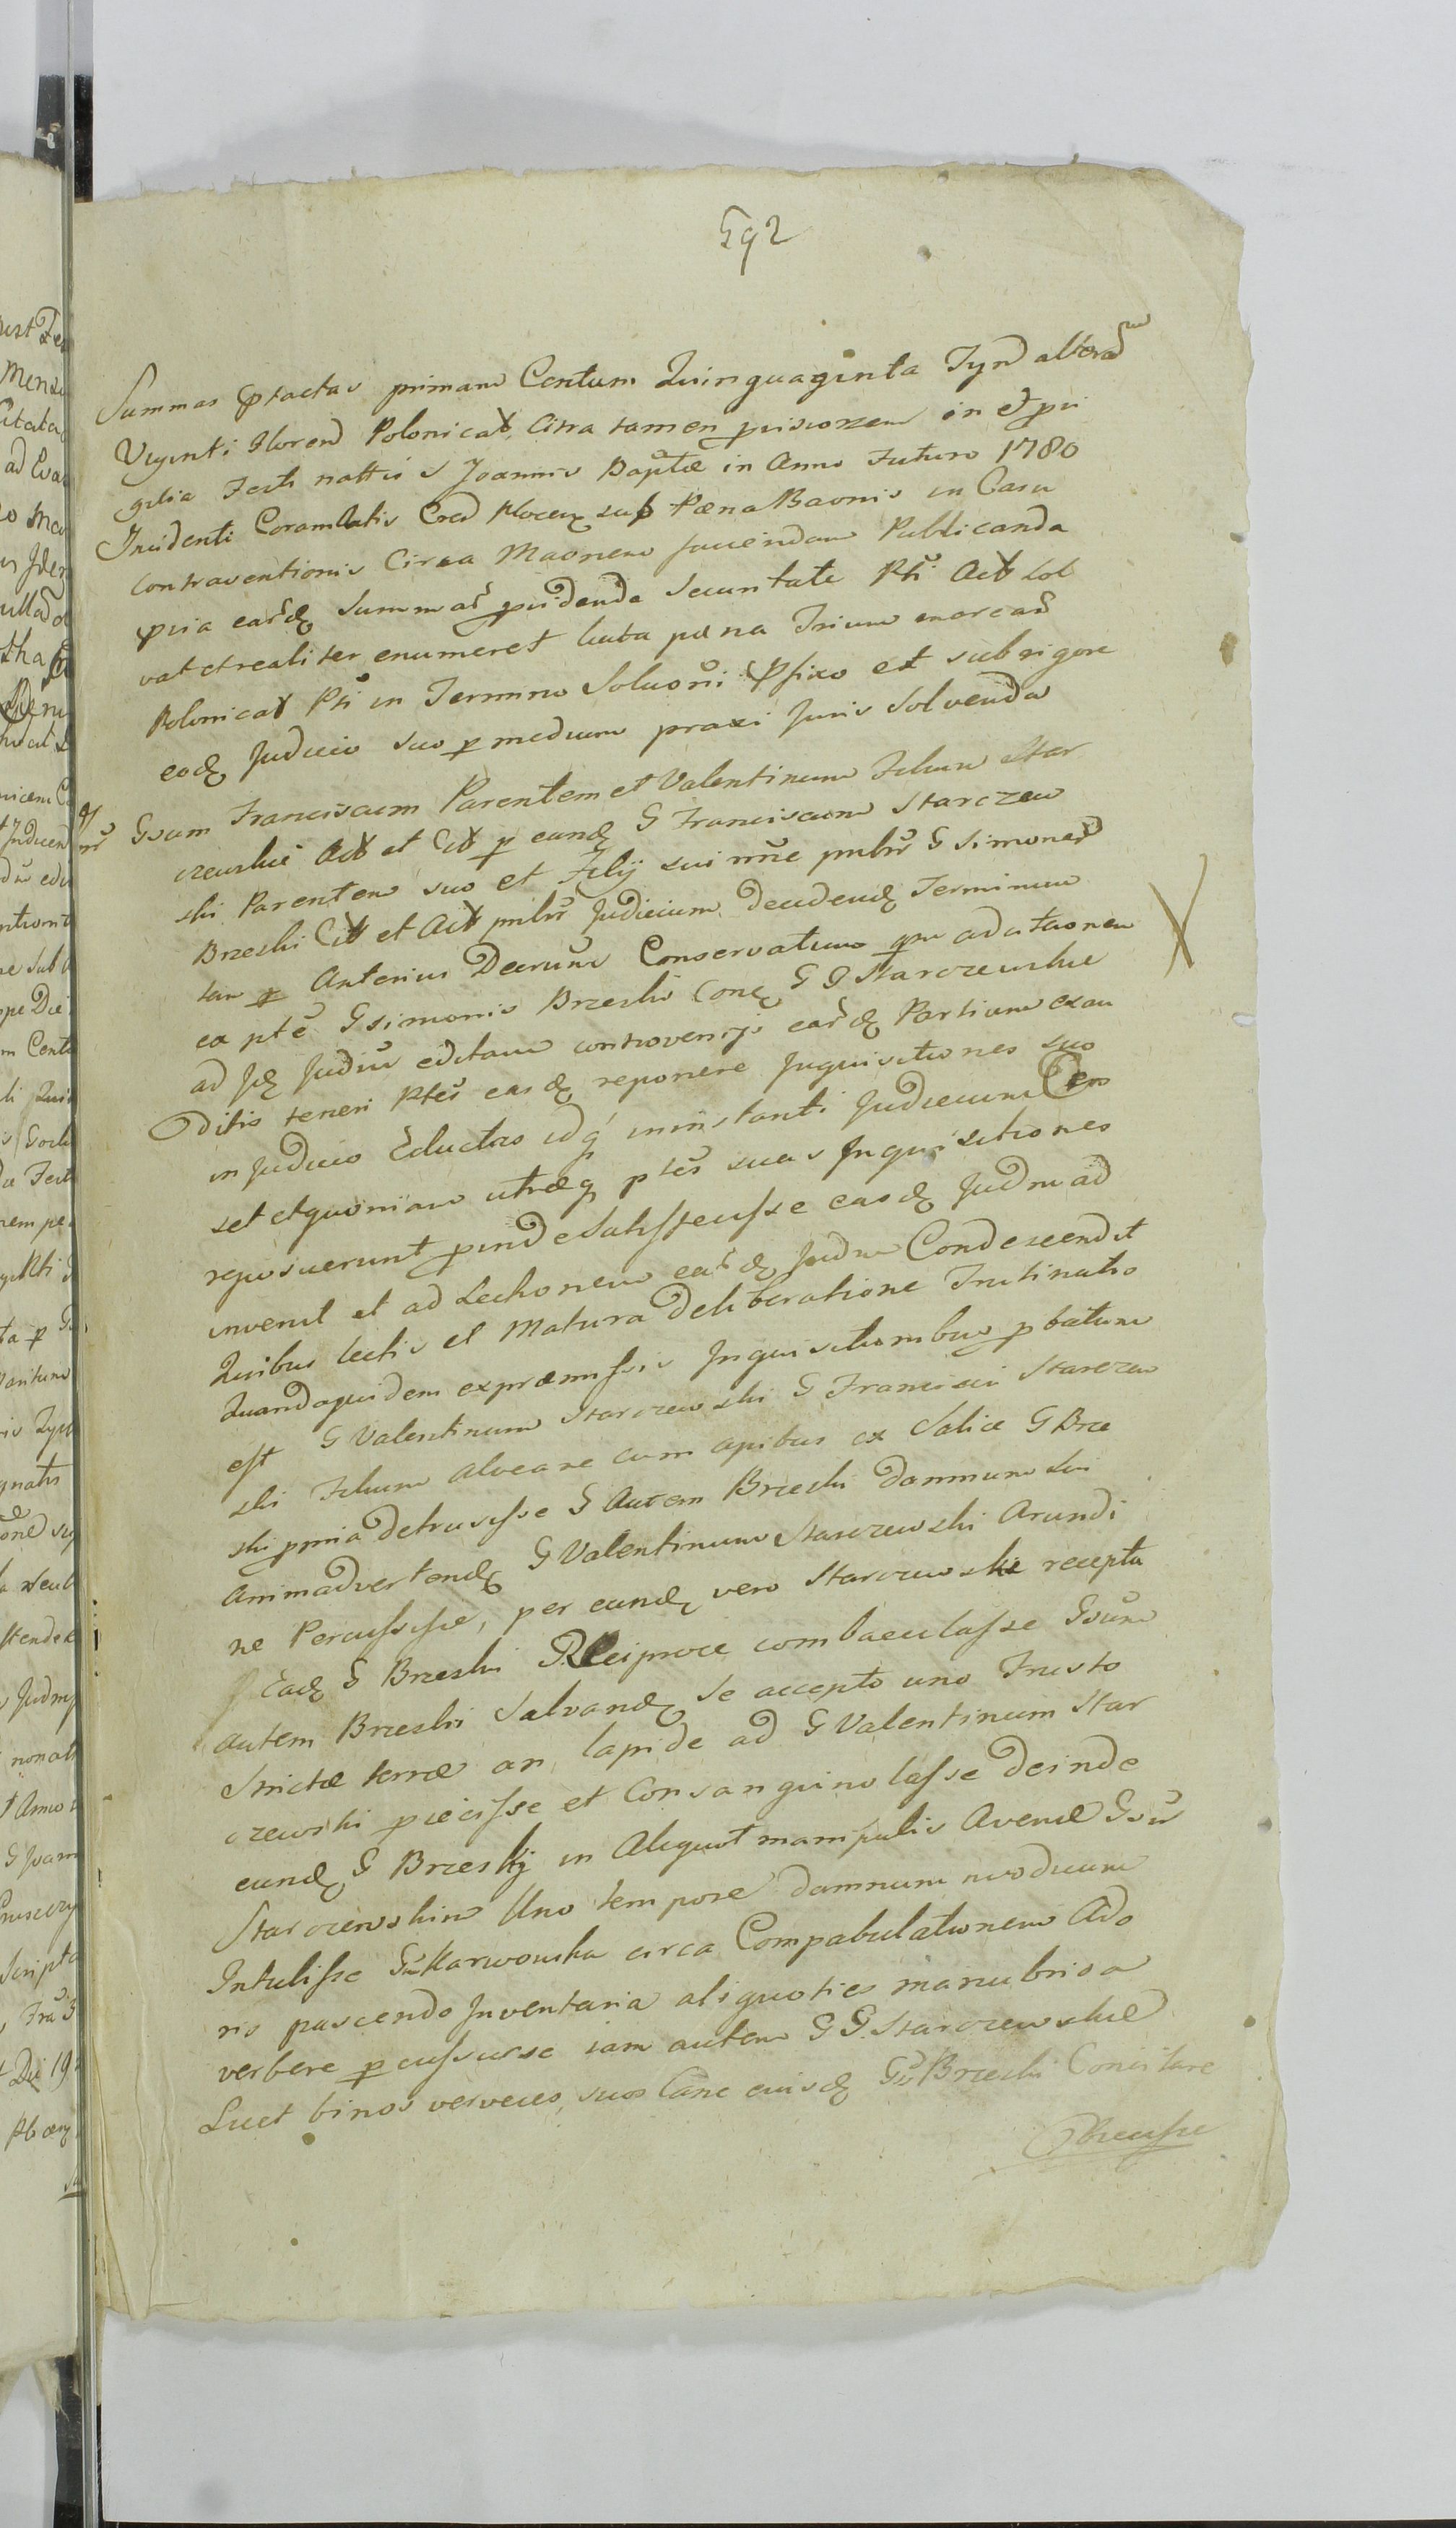 592
Summas Ptactas primam Centum Quinquaginta Tyn alterã
Viginti Floren Polonical, Citra tamen priscorzem in et pvi
gilia Festi nattis S Joannis Baptæ in Anno Futuro 1780
Incidenti Coram Actis Cred Plocen sub Pæna Baonis in Casu
contraventionis Circa Maonem faciendam Publicanda
pvia earõ Summar pvidenda Securitate Pti Act sol
vat et realiter enumeret luita pæna Trium marcar
Polonical Pti in Termino Soluoni Pfixo et sub rigore
eodq Judicio suo p medium praxi Juris Solvenda
Gsum Franciscum Parentem et Valentinum Filium Star
czewskie Act et Cit p eundq G Franciscum Starczew
ski Parentem suo et Filij sui nne pnbir G Simonem
Brzeski Cit et Act pnbir Judicium decidendq Terminum
tan p Anterius Decrum Conservatum pm adcitaonem
ex pte G Simonis Brzeski Conq G G Starczewskie
ad Jdq Judiu editam controversijs earõ Partium exau
Ditis teneri Ptes easdq reponere Inquisitiones suo
in Judicio Eductas idq in instanti Judicium Cen
set et quoniam utræq ptes suas Inquisitiones
reposuerunt pind e Satisfecisse easdq Judm ad
invenit et ad Lectionem earõ Judm Condescendit
Quibus lectis et Matura deliberatione Trutinatis
Quandoquidem ex præmissis Inquisitionibus pbatum
est G Valentinum Starczewski G Francisci Starczew
ski Filium alveare cum apibus ex Salice G Brze
ski pmia detrusisse G Autem Brzeski damnum sui
animadvertendq G Valentinum Starczewski Arundi
ne Percussisse, per eundq vero Starczewski recepta
Eadq G Brzeski Reciproce combaculasse Gsum
autem Brzeski Salvandq se accepto uno Frusto
Strictæ terræ an lapide ad G Valentinum Star
czewski piecisse et Consanguinolasse deinde
eundq G Brzeskij in Aliquot manipulis Avenæ Gsu
Starczewskim Uno tempore damnum modicum
Intulisse Gm Karwowska circa Compabulationem Ado
ris pascendo Inventaria aliquoties manubrio a
verbere pcussisse iam autem G G. Starczewskie
Licet binos verveces suos Cane eiusdq Gsi Brzeski Concitare